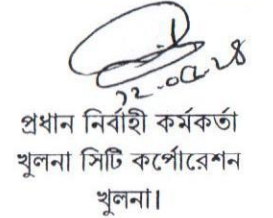 ১২.০৫.২৪
প্রধান নির্বাহী কর্মকর্তা
খুলনা সিটি কর্পোরেশন
খুলনা।